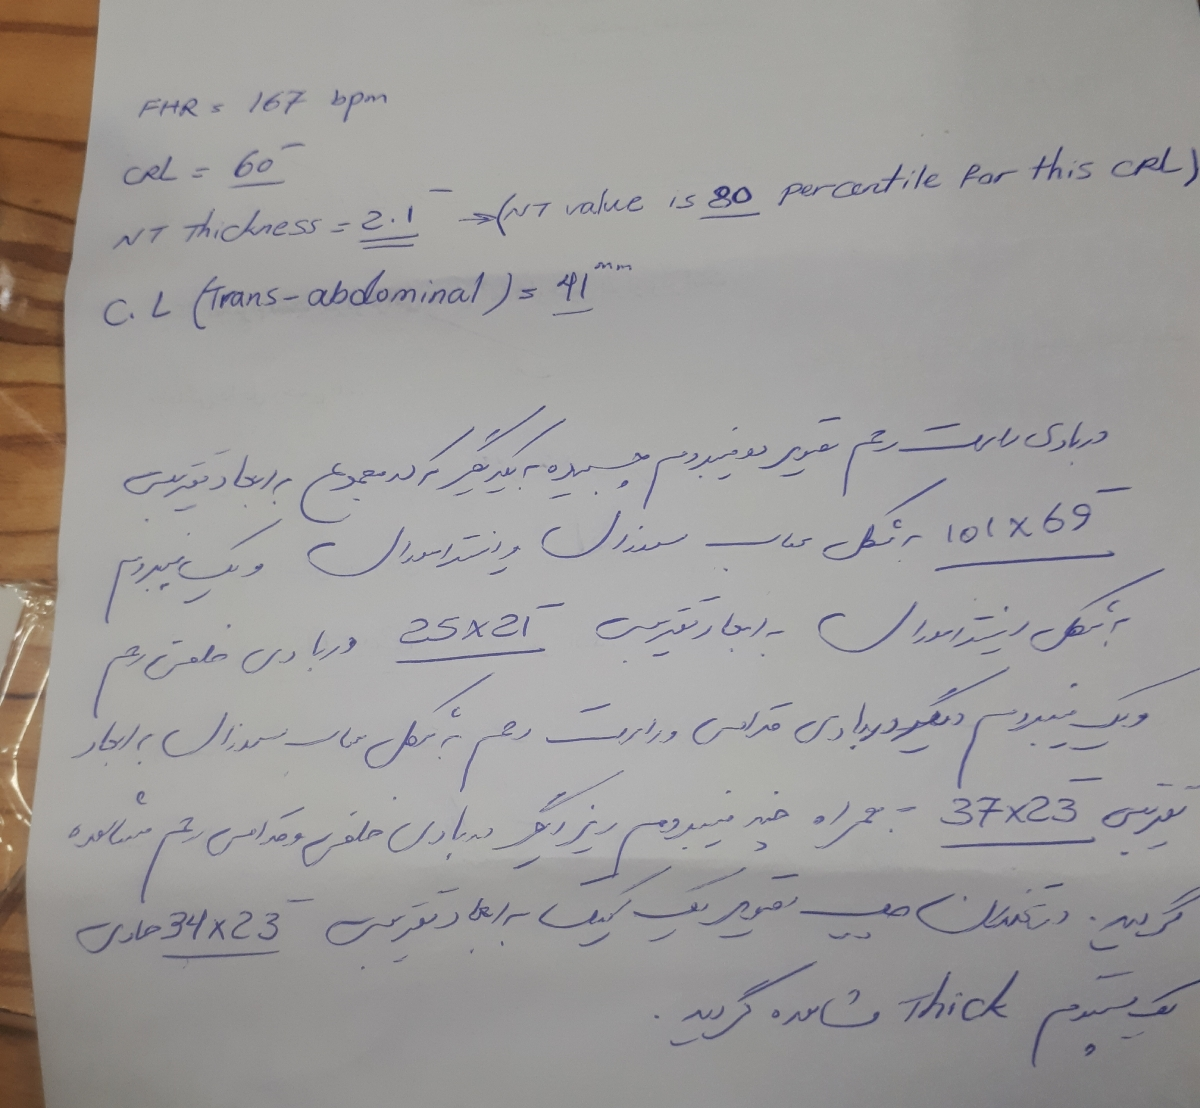 FHR = 167 bpm
CRL = 60
NT Thickness = 2.1 → (NT value is 80 percentile for this CRL)
C.L (Trans-abdominal) = 41 mm
در بادی رحم تصویر دو فیبروم چسبیده به یکدیگر که در مجموع به ابعاد تقریبی
101 x 69 به شکل ساب سروزال و اینترامورال و یک فیبروم
به شکل اینترامورال به ابعاد تقریبی 25 x 21 در بادی خلفی رحم
و یک فیبروم دیگر در بادی قدامی و راست رحم به شکل ساب سروزال به ابعاد
تقریبی 37 x 23 به همراه چند فیبروم ریز دیگر در بادی خلفی و قدامی رحم مشاهده
گردید. در تخمدان چپ تصویر یک کیست به ابعاد تقریبی 34 x 23 حاوی
یک سپتوم Thick مشاهده گردید.